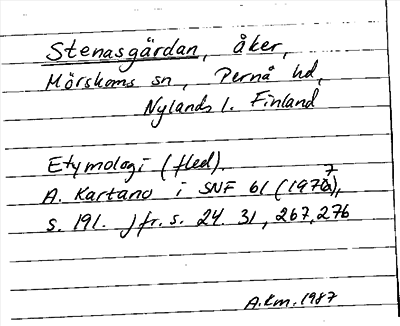 Stenasgärdan, åker,
Mörskoms sn, Pernå hd,
Nylands l. Finland
Etymologi (fled).
A. Kartano i SNF 61 (1977),
s. 191. jfr. s. 24. 31, 267, 276
A.Rm. 1987